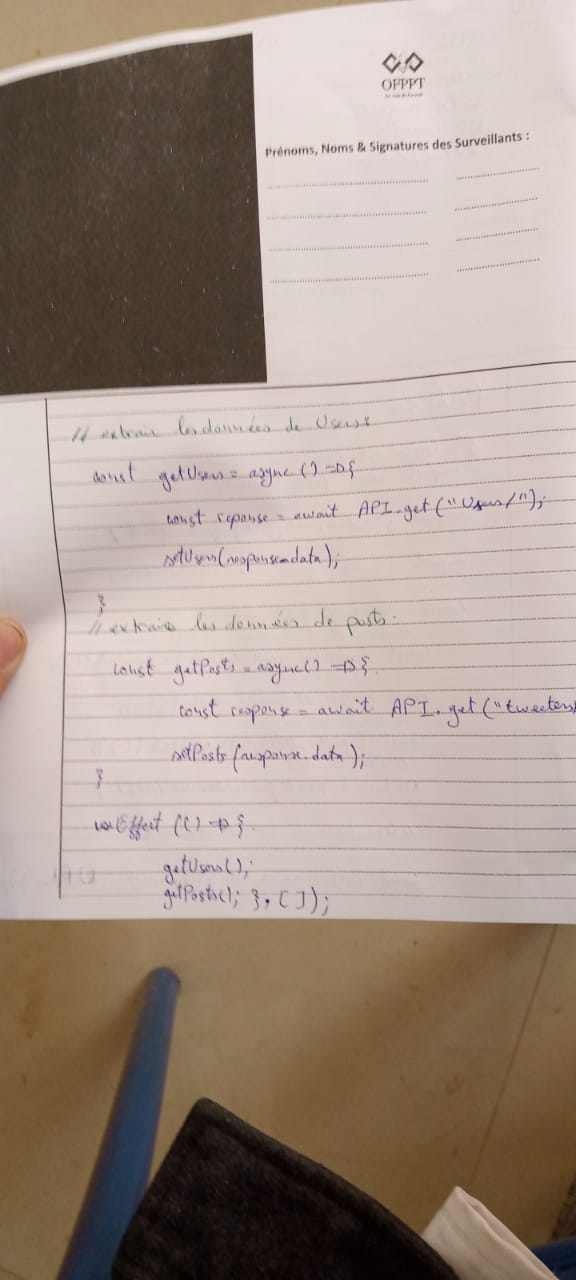 OFPPT
Prénoms, Noms & Signatures des Surveillants :
// extrair les données de Users
const getUsers = async () => {
const reponse = await API.get("Users/");
setUsers(response.data);
}
// extraire les données de posts.
const getPosts = async() => {
const response = await API.get("tweeters/
setPosts (response.data);
}
useEffect (() => {
getUsers();
getPosts(); }, []);